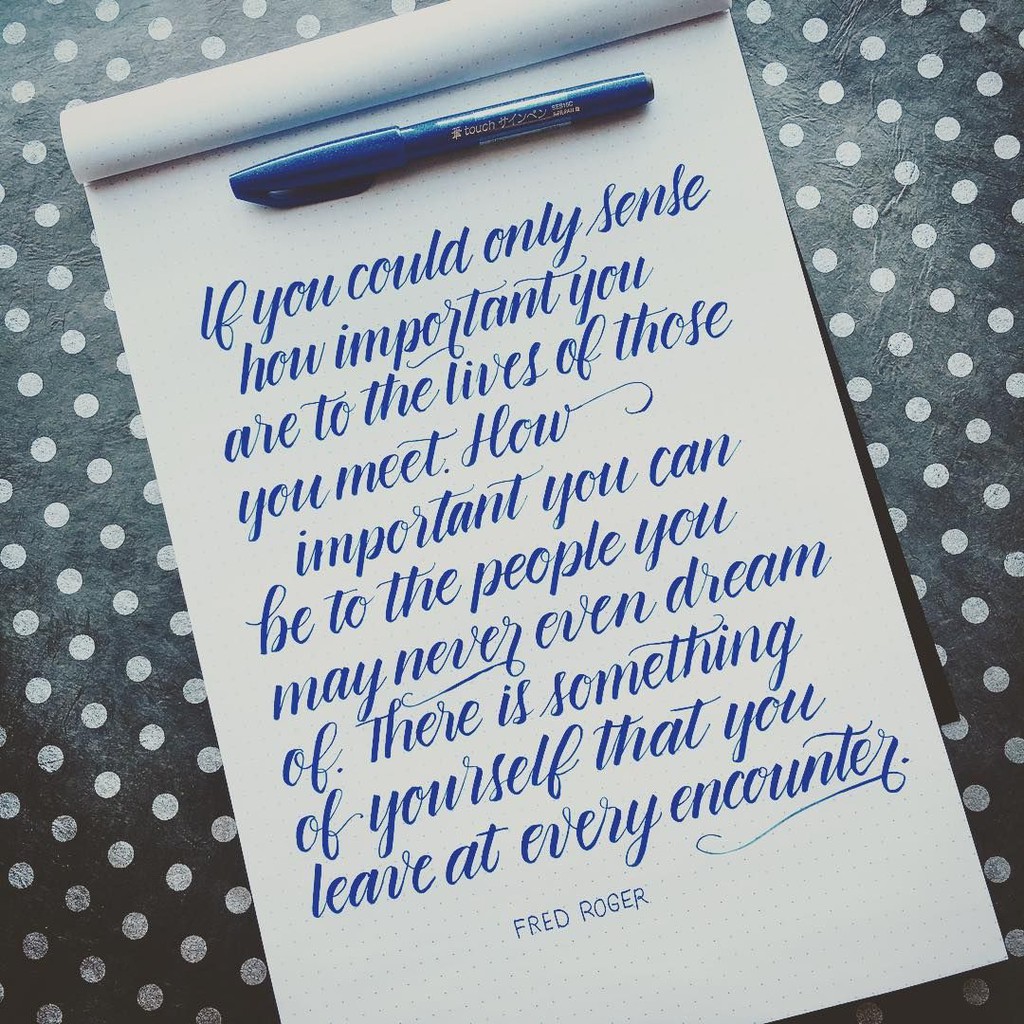 筆touch サインペン SES15C
If you could only sense
how important you
are to the lives of those
you meet. How
important you can
be to the people you
may never even dream
of. There is something
of yourself that you
leave at every encounter.
FRED ROGER